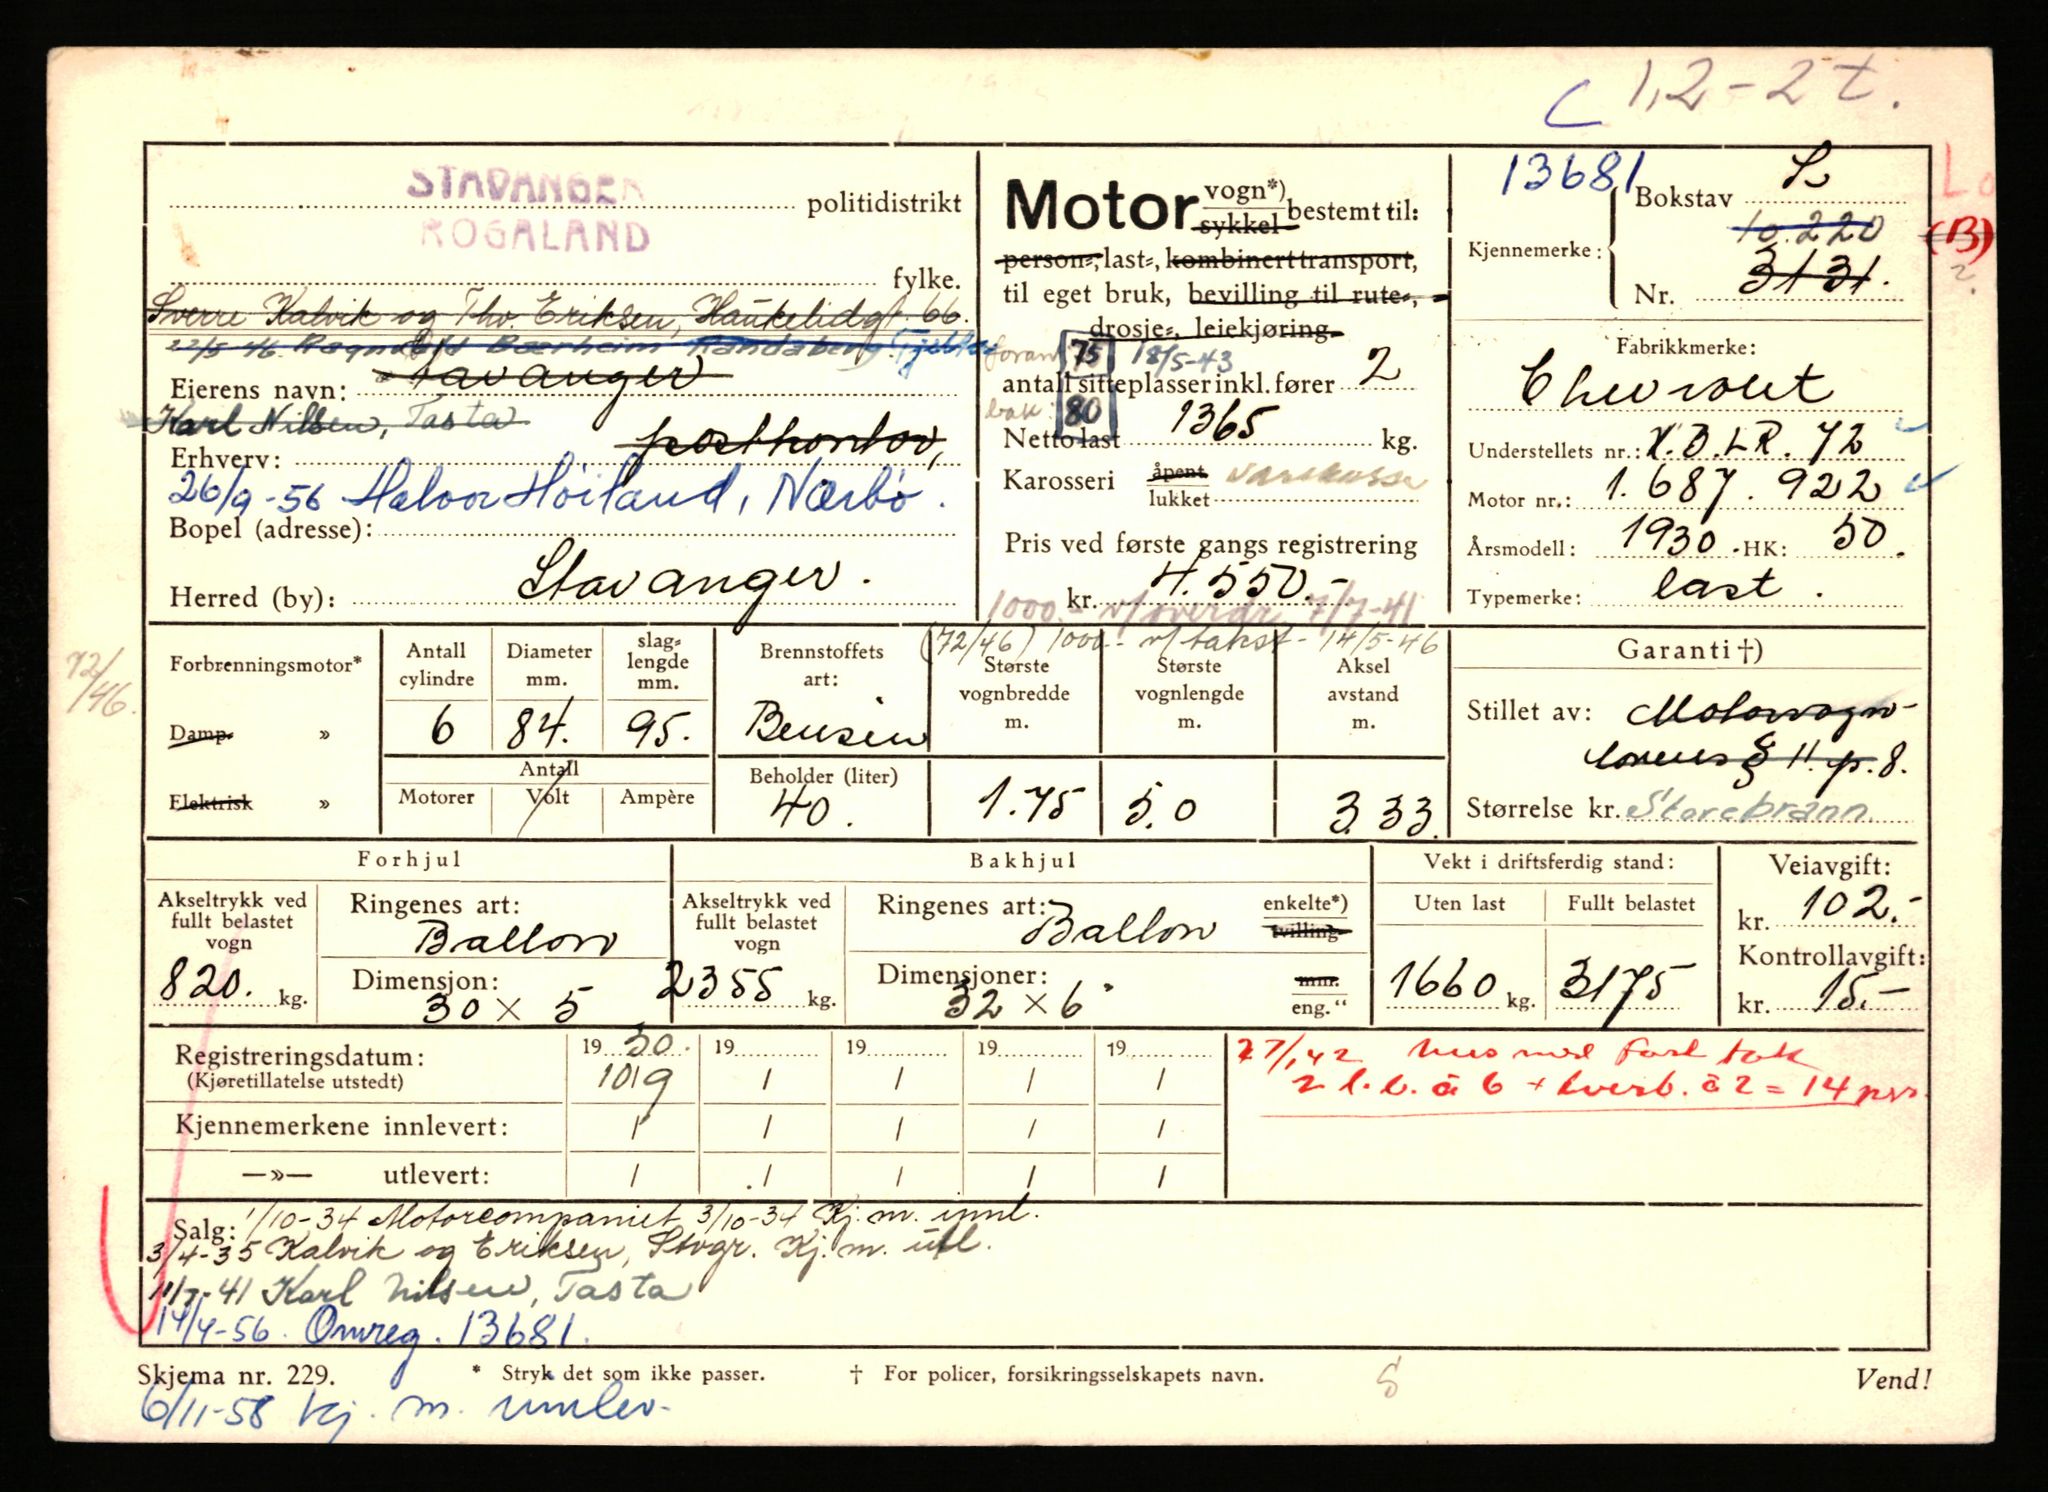 C 1,2 - 2 t.
STAVANGER
politidistrikt
ROGALAND
fylke.
Sverre Kalvik og Thv. Eriksen, Haukelidgt. 66.
22/5-46 Bærheim Randaberg
Eierens navn: Stavanger
Karl Nilsen, Tasta
postkontor,
Erhverv:
26/9-56 Halvor Höiland, Nærbö.
Bopel (adresse):
Herred (by): Stavanger.
Motor vogn*) sykkel bestemt til:
person-, last-, kombinert transport,
til eget bruk, bevilling til rute-,
drosje-, leiekjøring.
foran: 75 18/5-43
antall sitteplasser inkl. fører 2
bak: 80
Netto last 1365 kg.
Karosseri åpent lukket varekasse
Pris ved første gangs registrering
kr. 4.550.-
1000.- v/overdr. 7/7-41
(72/46) 1000.- v/takst- 14/5-46
13681
Kjennemerke: Bokstav L
10.220
Nr. 3131.
Lo
(B)
2.
Fabrikkmerke:
Chevrolet
Understellets nr.: X.D.LR.72
Motor nr.: 1.687.922
Årsmodell: 1930. HK: 50.
Typemerke: last.
72/46.
Forbrenningsmotor*
Damp- »
Elektrisk »
Antall cylindre
6
Diameter mm.
84.
slag-lengde mm.
95.
Antall
Motorer Volt Ampère
Brennstoffets art:
Bensin
Beholder (liter)
40.
Største vognbredde m.
1.75
Største vognlengde m.
5.0
Aksel avstand m.
3.33.
Garanti †)
Stillet av: Motorvogn-
lovens § 11. p. 8.
Størrelse kr. Storebrann
Forhjul
Akseltrykk ved fullt belastet vogn
820. kg.
Ringenes art:
Ballon
Dimensjon:
30 x 5
Bakhjul
Akseltrykk ved fullt belastet vogn
2355 kg.
Ringenes art: Ballon enkelte*) tvilling-
Dimensjoner:
32 x 6" mm. eng."
Vekt i driftsferdig stand:
Uten last
1660 kg.
Fullt belastet
3175
Veiavgift:
kr. 102.-
Kontrollavgift:
kr. 15.-
Registreringsdatum: 19 30. 19 19 19 19
(Kjøretillatelse utstedt) 10/9 / / / /
Kjennemerkene innlevert: / / / / /
—»— utlevert: / / / / /
27/1.42 hus med fast tak
2 l.b. à 6 + tverb. à 2 = 14 prs.
Salg: 1/10-34 Motorcompaniet 3/10-34 Kj.m. innl.
3/4-35 Kalvik og Eriksen, Stvgr. Kj.m. utl.
11/7-41 Karl Nilsen, Tasta
14/4-56. Omreg. 13681.
Skjema nr. 229. * Stryk det som ikke passer. † For policer, forsikringsselskapets navn. S Vend!
6/11-58 kj. m. innlev.